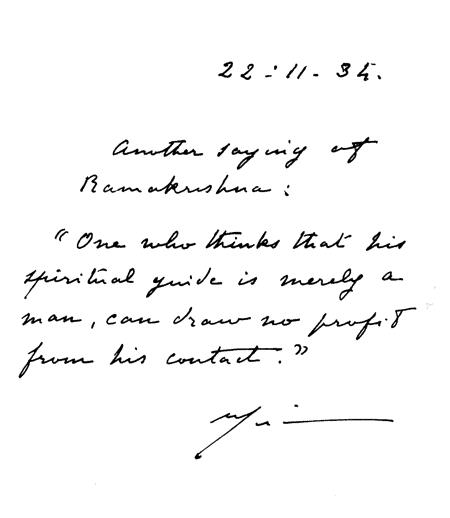 22-11-34.
Another saying of
Ramakrishna:
"One who thinks that his
spiritual guide is merely a
man, can draw no profit
from his contact."